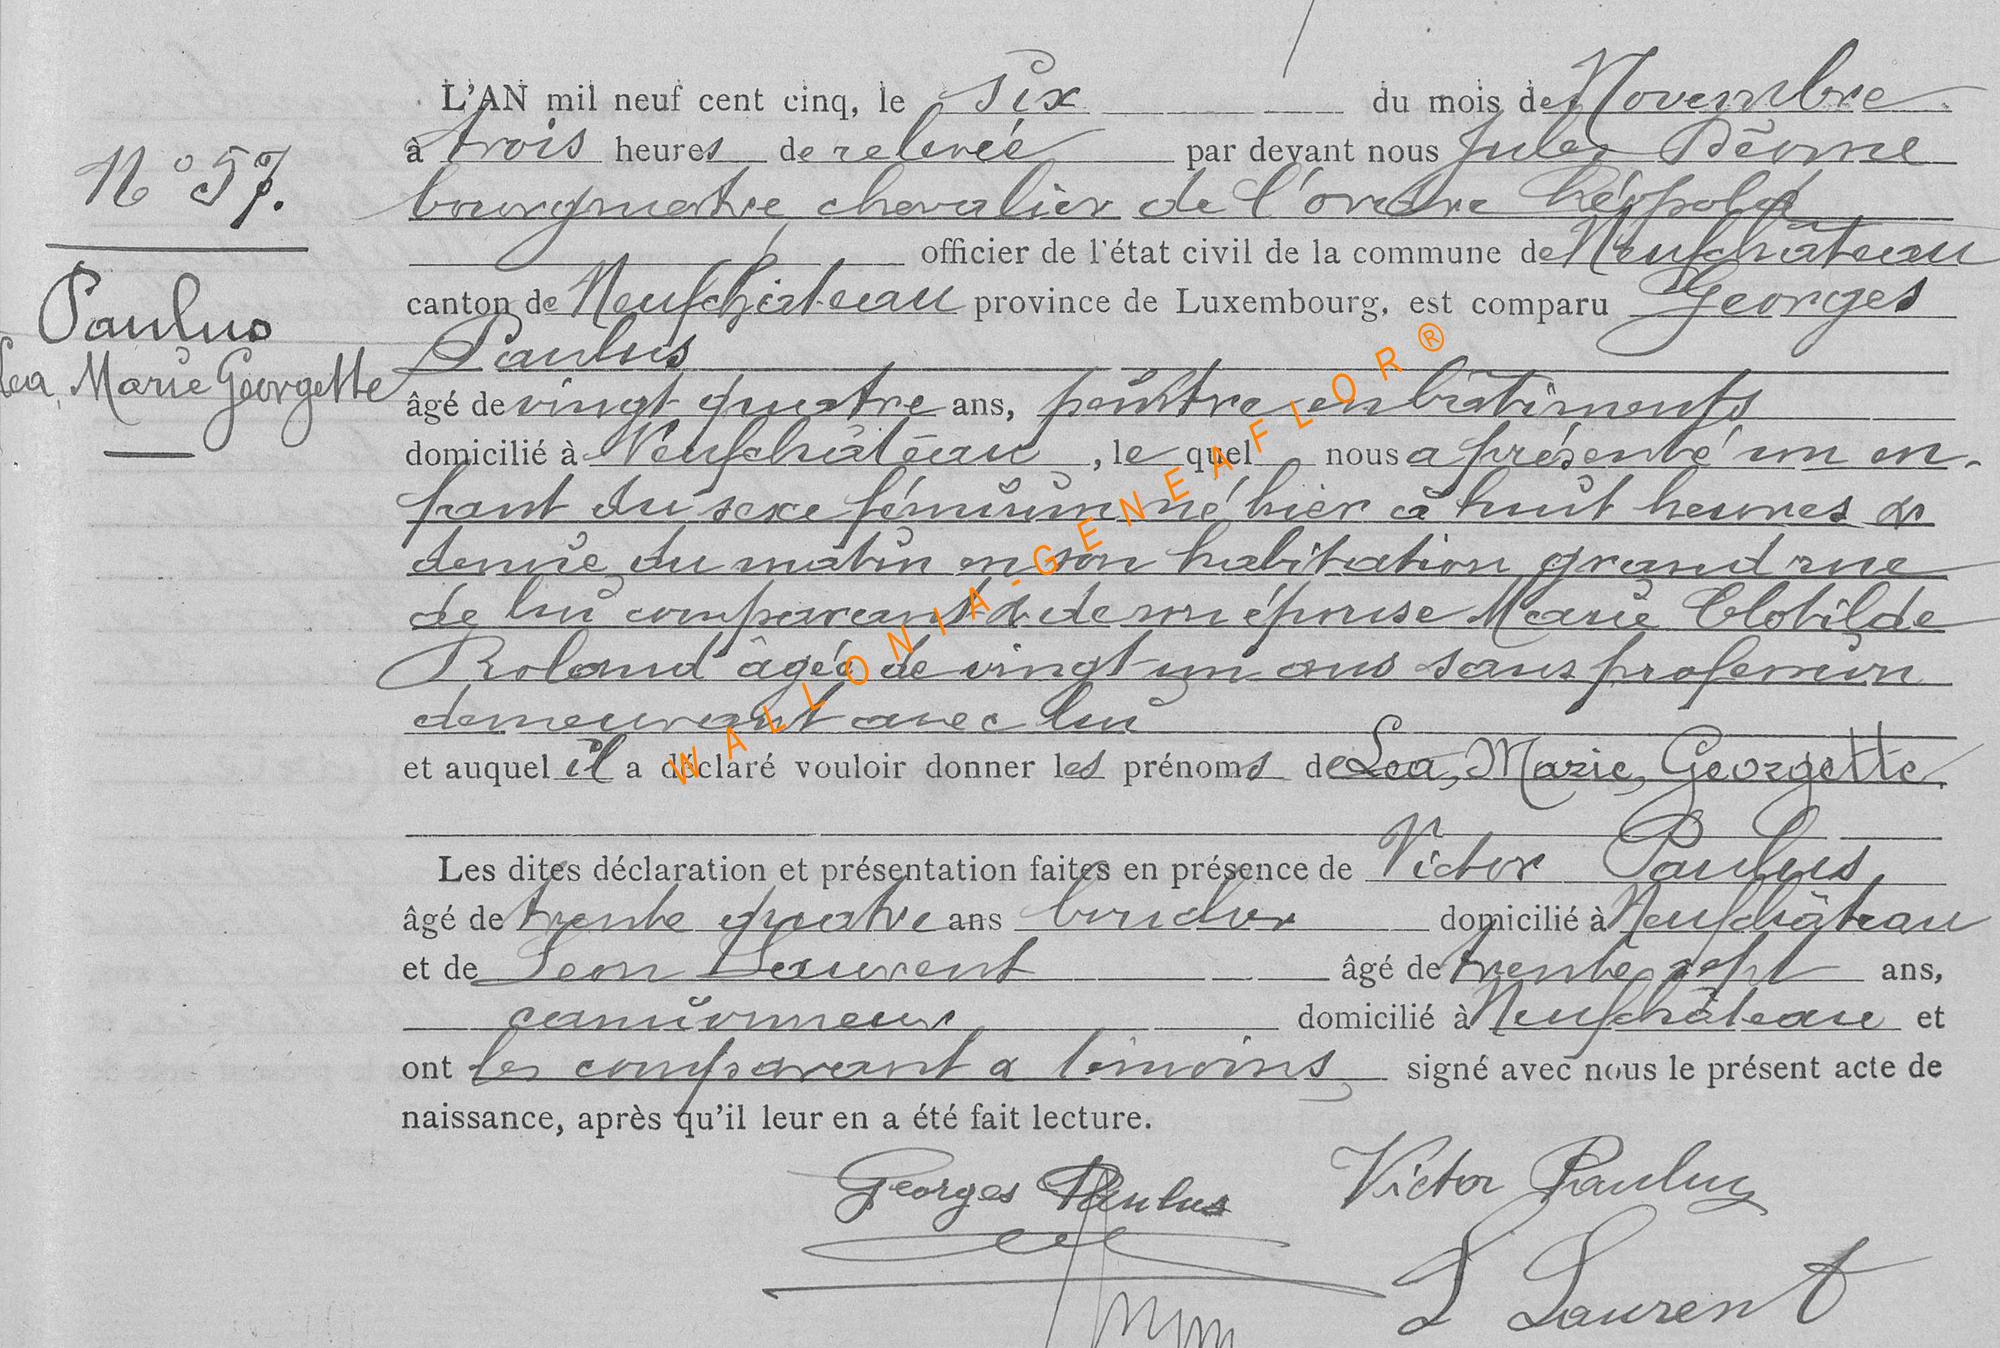 L'AN mil neuf cent cinq, le six du mois de Novembre
à trois heures de relevée par devant nous Jules Déome
N° 57.
bourgmestre chevalier de l'ordre Léopold
officier de l'état civil de la commune de Neufchâteau
canton de Neufchâteau province de Luxembourg, est comparu Georges
Paulus
Paulus
Lea, Marie Georgette
âgé de vingt quatre ans, peintre en bâtiments
domicilié à Neufchâteau, le quel nous a présenté un en-
fant du sexe féminin né hier à huit heures &
demie du matin en son habitation grand rue
de lui comparant & de son épouse Marie Clotilde
Roland âgée de vingt un ans sans profession
demeurant avec lui
et auquel il a déclaré vouloir donner les prénoms de Lea, Marie, Georgette
Les dites déclaration et présentation faites en présence de Victor Paulus
âgé de trente quatre ans domicilié à Neufchâteau
et de Leon Laurent âgé de trente sept ans,
camionneur domicilié à Neufchâteau et
ont les comparant & témoins signé avec nous le présent acte de
naissance, après qu'il leur en a été fait lecture.
Georges Paulus Victor Paulus
L Laurent
WALLONIA-GENEAFLOR®